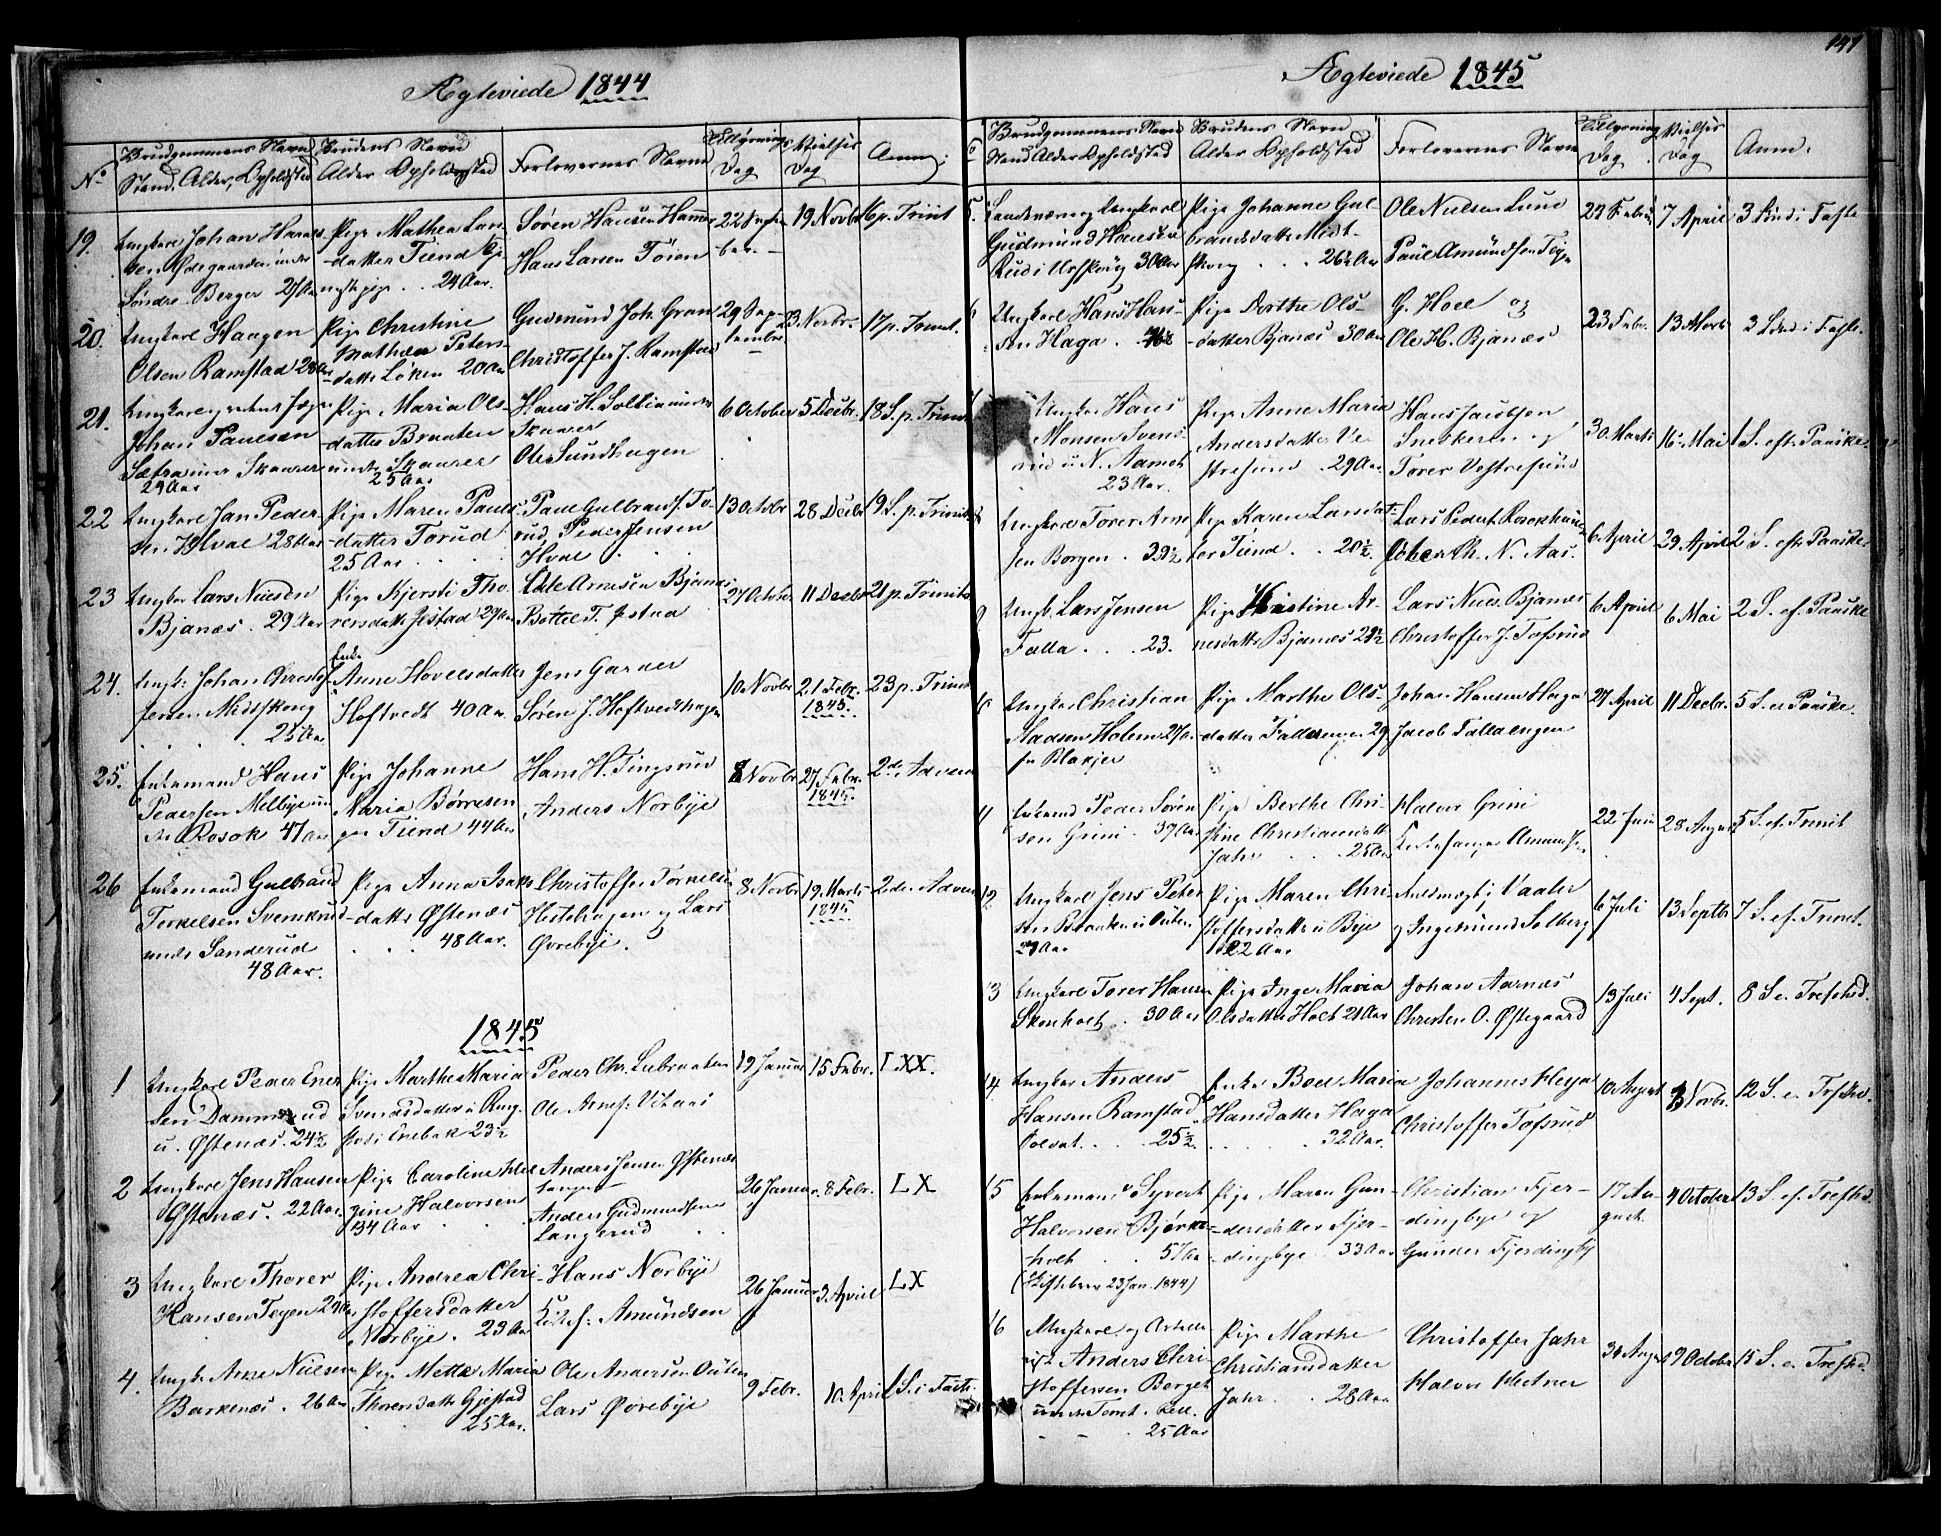 Ægteviede 1844
No
Brudgommens Navn
Stand, Alder, Opholdssted
Brudens Navn
Alder Opholdssted
Forlovernes Navne
Tillysnings
Dag
Vielses
Dag
Anm:
19. Ungkarl Johan Hans-
sen Ødegaarden under
Søndre Berger 27 Aar
Pige Mathea Lars-
datter Tiend
24 Aar.
Søren Hansen Hammer
Hans Larsen Toien
22 Septem
ber
19 Novbr
16 p. Trinit
20. Ungkarl Haagen
Olsen Ramstad 28 Aar
Pige Christine
Mathea Peters-
datter Løken 20 Aar
Gudmund Joh. Gran
Christoffer J. Ramstad
29 Sep-
tember
23 Novbr.
17 p. Trinit.
21. Ungkarl
Johan Paulsen
Sætra under Skaarer
29 Aar
Pige Maria Ols-
datter Braaten
under Skaarer
25 Aar
Hans H. Sollia under
Skaarer
Ole Sundhagen
6 October
5 Decbr.
18 S. p. Trinit
22 Ungkarl Jan Peder
sen Hval 28 Aar
Pige Maren Pauls-
datter Torud
25 Aar
Paul Gulbrands. To-
rud, Peder Jensen
Hval
13 Octbr
28 Decbr
19 S. p. Trinit
23 Ungkar Lars Nielsen
Bjanæs. 29 Aar
Pige Kjersti Tho-
rersdatt. Jistad 29 Aar
Ole Arnesen Bjanæs
Bottel T. Jstad
27 Octobr.
11 Decbr
21 p. Trinit
24. Ungk: Johan Christof-
fersen Midtskoug
25 Aar
Enke
Anne Hovelsdatter
Hoftvedt 40 Aar
Jens Garder
Søren J. Hoftvedthagen
10 Novbr
21 Febr.
1845.
23 p. Trinit
25. Enkemand Hans
Pedersen Melbye un
der Rosok 47 Aar
Pige Johanne
Maria Børresen
Tiend 44 Aar
Hans H. Tingsrud
Anders Norbye
8 Novbr
27 Febr.
1845.
2de Advent
26 Enkemand Gulbrand
Torkelsen Svenskrud
under Sanderud
48 Aar.
Pige Anna Isaks
datter Østenæs
48 Aar.
Christoffer Torkelsen
Hestehagen og Lars
Øvrebye.
8 Novbr
19. Marts
1845
2de Advent
1845
1 Ungkarl Peder Ener
sen Dammerud
u. Østenæs. 24½
Pige Marthe Maria
Svendsdatter u Rung-
stve i Enebak 23½
Peder Chr. Lubraaten
Ole Arnes: Vitaas
19 Januar
15 Febr.
LXX.
2 Ungkarl Jens Hansen
Østenæs. 22 Aar.
Pige Caroline Hel
gine Halvorsen
34 Aar
Anders Jensen Østenæs
tangen
Anders Gudmundsen
Langerud
26 Januar
8 Febr.
LX
3 Ungkarl Thorer
Hansen Toyen 29 Aar
Pige Andrea Chri-
stoffersdatter
Norbye. 23 Aar
Hans Norbye
Kirkes: Amundsen
26 Januar
3 April
LX
4. Ungk. Arne Nielsen
Barkenæs. 26 Aar
Pige Mette Maria
Thorersdatt. Gjestad
25 Aar.
Ole Andersen Ouslen
Lars Øvrebye
9 Febr.
10. April
1 S. i Faste
141
Ægteviede 1845
Brudgommens Navn
Stand Alder Opholdssted
Brudens Navn
Alder Opholdssted
Forlovernes Navne
Tillysnings
Dag
Vielses
Dag
Anm.
5. Landværn og Ungkarl
Gudmund Hansen
Rud i Urskoug 30 Aar
Pige Johanne Gul
brandsdatt. Midt-
skoug 26½ Aar
Ole Nielsen Lund
Paul Amundsen Teje
23 Februar
7 April
3 Sønd. i Faste
6 Ungkarl Hans Hans-
sen Haga.
Pige Dorthe Ols-
datter Bjanæs 30 Aar
G. Hoel og
Ole H. Bjanæs
23 Febr.
13 Marts
3 Sønd. i Faste
7 Ungkar Hans
Monsen Svens
rud u N. Aamot
23 Aar.
Pige Anne Maria
Andersdatter Ve
stresund 29 Aar.
Hans Jacobsen
Snekkeren og
Torer Vestresund
30 Marts
16 Mai
1 S. eft. Paaske
8 Ungkarl Torer Arne
sen Borgen. 39½
Pige Karen Larsdat-
ter Tiend. 20½
Lars Peders. Rosokhaugen
Johan Ch. N. Aas.
6 April
29 April
2 S. eft. Paaske
9 Ungk. Lars Jensen
Falla 23.
Pige Kristine Ar-
nesdatter Bjanæs 29½
Lars Niels. Bjanæs
Christoffer J. Tofsrud
6 April
6 Mai
2 S. ef. Paaske
10 Ungkar Christian
Madsen Holem 27 Aar
fr Blakjer
Pige Marthe Ols-
datter Fallaengen 29
Johan Hansen Haga
Jacob Fallaengen
27 April
11 Decbr.
5 S. e Paaske.
11 Enkemd Peder Søren
sen Grini. 37 Aar
Pige Berthe Chri-
stine Christiansdatt.
Jahr 25 Aar
Halvor Grini
Kirkesanger Amundsen
22 Juni
28 August
5 S. ef. Trinit
12 Ungkarl Jens Peter
sen Braaten u Ouslen
29 Aar
Pige Maren Chri-
stoffersdatter u Bye
22 Aar
Vaaler
og Ingemund Solberg
6 Juli
13 Septbr
7 S. ef. Trinit.
13 Ungkarl Torer Hansen
Skonholt. 30 Aar
Pige Inge Maria
Olsdatter Holt 21 Aar
Johan Aarnæs
Christen O. Østegaard
13 Juli
4 Sept.
8 S e. Trefhd.
14 Ungkar Anders
Hansen Ramstad
Soldat. 25½
Enke Boel Maria
Hansdatter Haga
32 Aar.
Johannes Heya
Christoffer Tofsrud
10 August
3 Novbr.
12 S. e. Trefhd.
15 Enkemand Syvert
Halvorsen Bjørke-
holt 57 Aar
(Skiftebrev 23 Jan. 1844)
Pige Maren Gun-
dersdatter Fjer-
dingbye. 33 Aar
Christian Fjer-
dingbye og
Gunder Fjerdingby
17 Au-
gust.
4 October
13 S. ef. Trefhd.
16 Ungkarl og Artille
rist Anders Chri-
stoffersen Berget
under Tomt.
25 Aar
Pige Marthe
Christiansdatter
Jahr. 28 Aar
Christoffer Jahr
Halvor Hectner
31 August
19 Octobr
15 S. e. Trefhd.